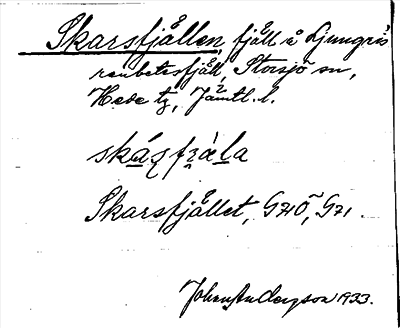 Skarsfjällen, fjäll å Ljungris
renbetesfjäll, Storsjö sn,
Hede tg, Jämtl. l.
skásfjäla
Skarsfjället, G71Ö, G71.
1933.